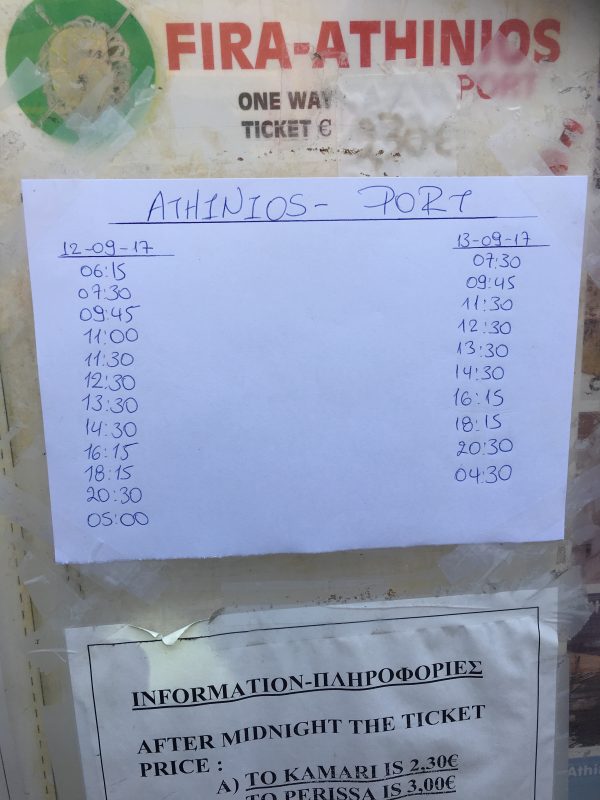 FIRA-ATHINIOS
PORT
ONE WAY
TICKET €
2,30€
ATHINIOS- PORT
12-09-17
06:15
07:30
09:45
11:00
11:30
12:30
13:30
14:30
16:15
18:15
20:30
05:00
13-09-17
07:30
09:45
11:30
12:30
13:30
14:30
16:15
18:15
20:30
04:30
INFORMATION-ΠΛΗΡΟΦΟΡΙΕΣ
AFTER MIDNIGHT THE TICKET
PRICE :
A) TO KAMARI IS 2,30€
TO PERISSA IS 3,00€